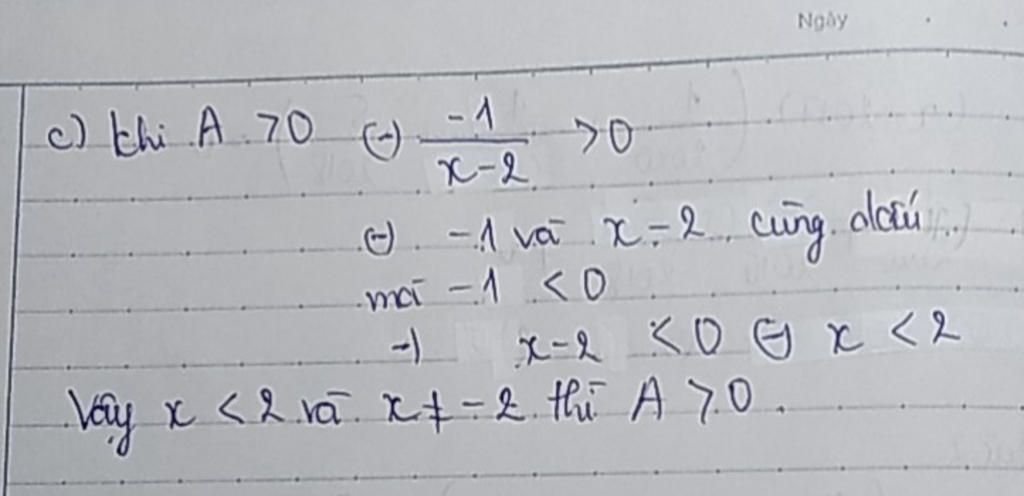 Ngày
c) khi A > 0 ⇔ \frac{-1}{x-2} > 0
⇔ -1 và x-2 cùng dấu
mà -1 < 0
⇒ x-2 < 0 ⇔ x < 2
Vậy x < 2 và x ≠ -2 thì A > 0.